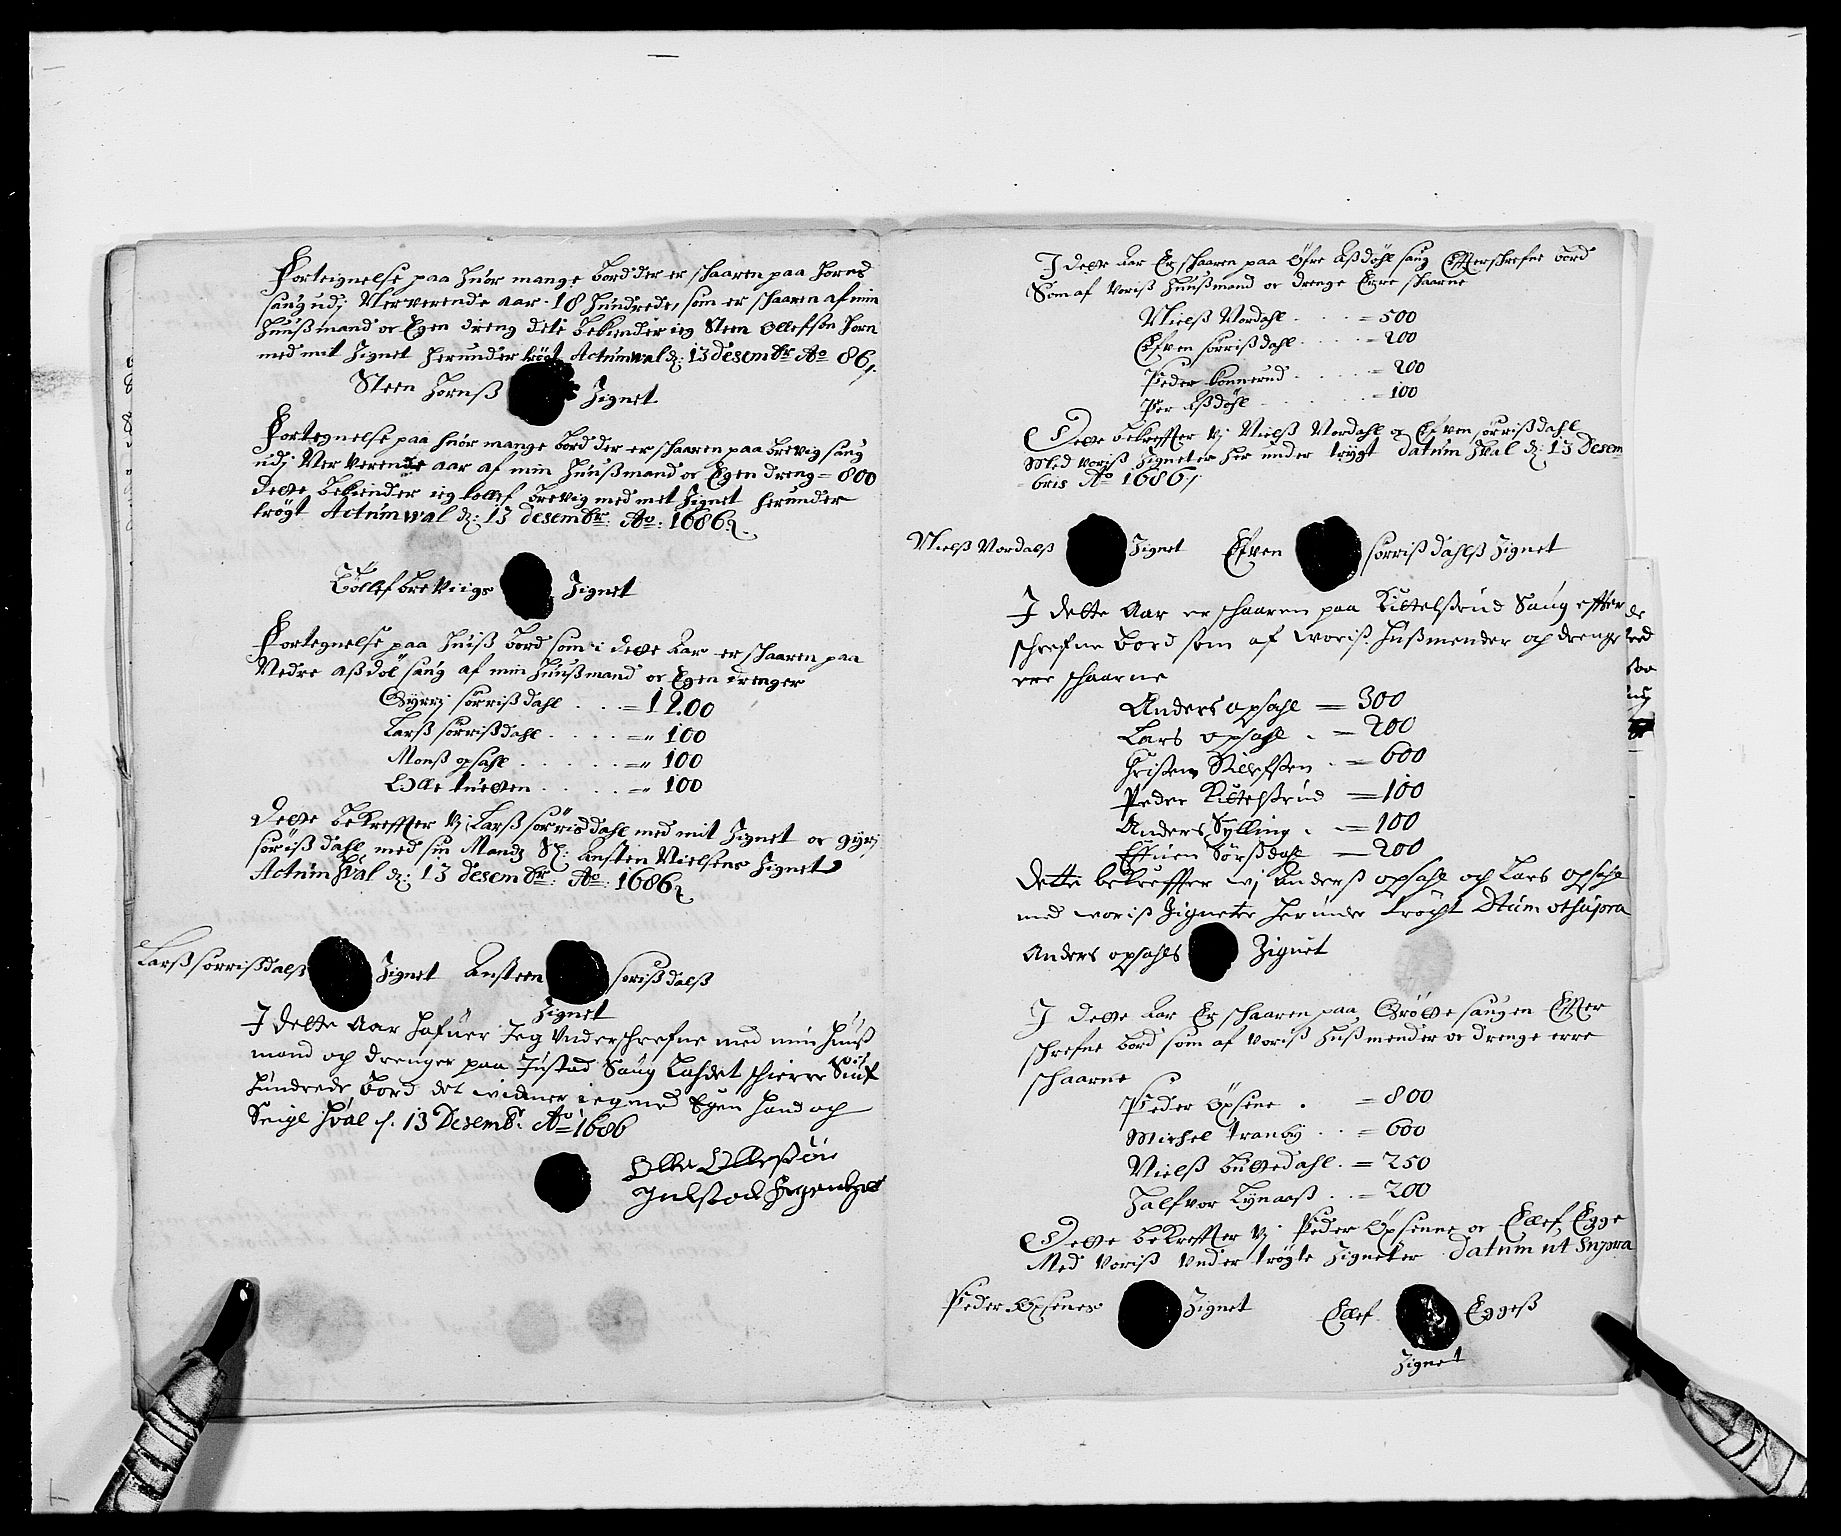 Forteignelse paa huor mange bord der er schaaren paa Horns
saug udj Nerverende aar - 18 hundrede, som er schaaren af min
huußmand oc Egen dreng dete bekiender ieg Steen Ollefson Horn
med mit Zignet herunder trögt Actum wal d: 13 desembr: Ao 86,
Steen Hornß Zignet
Fortegnelse paa huor mange bord der er schaaren paa brevig saug
udj Nerverende aar af min huußmand oc Egen dreng = 800
dette bekiender ieg tollef brevig med met Zignet herunder
trögt Actum wal d: 13 desembr: Ao: 1686
Tollef breviigs Zignet
Fortegnelse paa huiß bord som i dette Aar er schaaren paa
Nedre aßdöl saug af min huußmand oc Egen drenger
Gyrri sörrißdahl . . . = 1200
Larß sörrißdahl . . . . = " 100
Monß opsahl . . . . . = " 100
Olle tuetten . . . . . = " 100
dette bekreffter Vj Larß sörrisdahl med mit Zignet oc gyri
sörißdahl med sin Mands Sl: Ansten Nielsens Zignet
Actum Hval d: 13 desembr: Ao: 1686
Larß sörrißdalß Zignet Ansteen sörißdalß
Zignet
I dette Aar hafuer Jeg Underschrefne med min huuß
mand och drenger paa Justad Saug ladet schierre
hundrede bord det widner ieg med Egen hand och
Seigl Hval d. 13 Desemb: Ao 1686
Olle Ollessön
Egenhand
I dette Aar Er schaaren paa öfre Aßdöhl saug Effterschrefne bord
Som af Voriß huußmand oc drenge Erre schaarne
Nielß Nordahl . . . . = 500
Efven sörrißdahl . . . . = 200
Peder bonnerud . . . . = 200
Per Aßdöhl . . . . . = 100
Dette bekreffter Vj Nielß Nordahl og Efven sörrißdahl
Med voriß Zigneter her under trögt datum Hval d: 13 Desem
bris Ao 1686,
Nielß Nordalß Zignet Efven sörrißdahlß Zignet
I dette Aar er schaaren paa Kittelßrud Saug effter
schrefne bord som af woriß hußmender och drenge
ere schaarne
Anders opsahl = 300
Lars opsahl . = 200
Christen . = 600
Peder Kittelßrud = 100
Anders Sylling . = 100
Effuen Sörßdahl = 200
dette bekreffter wj Anderß opsahl och Lars opsahl
med woriß Zigneter herunder tröcht Dtum utsupra
Anders opsahls Zignet
I dette Aar Er schaaren paa Gröttesaugen Effter
schrefne bord som af voriß hußmender oc drenge erre
schaarne
Peder Opsene . = 800
Michel tranby . . = 600
Nielß buttedahl . = 250
Halfvor Lynaaß . . = 200
Dette bekreffter Vj Peder Opsenne oc Ellef Egge
Med voriß under trögte Zigneter datum ut Supra
Peder Opsenes Zignet Ellef Eggeß
Zignet